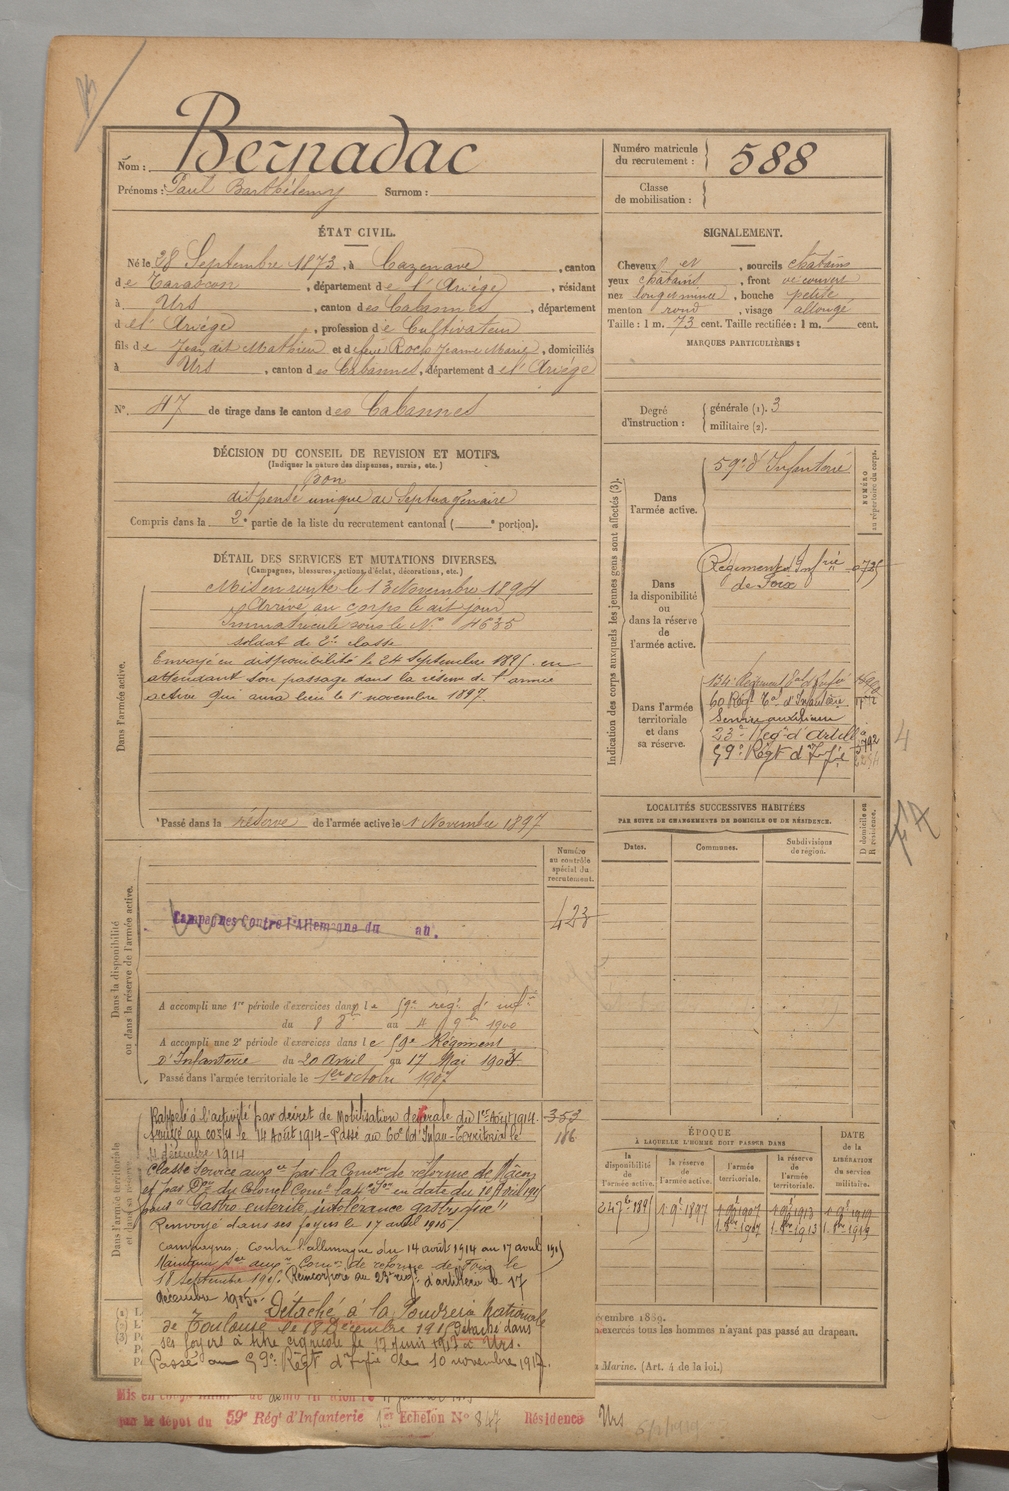 Nom : Bernadac
Prénoms : Paul Barthélemy Surnom :
Numéro matricule du recrutement : 588
Classe de mobilisation :
ÉTAT CIVIL.
Né le 28 Septembre 1873, à Cazenave, canton
de Tarascon, département de l'Ariége, résidant
à Urs, canton des Cabannes, département
de l'Ariége, profession de Cultivateur
fils de Jean dit Mathieu et de feue Roch Jeanne Marie, domiciliés
à Urs, canton des Cabannes, département de l'Ariége
N° 47 de tirage dans le canton des Cabannes
SIGNALEMENT.
Cheveux et, sourcils chatains
yeux chatains, front découvert
nez long, bouche petite
menton rond, visage allongé
Taille : 1 m. 73 cent. Taille rectifiée : 1 m. cent.
MARQUES PARTICULIÈRES :
Degré d'instruction : générale (1). 3
militaire (2).
DÉCISION DU CONSEIL DE REVISION ET MOTIFS.
(Indiquer la nature des dispenses, sursis, etc.)
Bon
dispensé unique de Septuagénaire
Compris dans la 2e partie de la liste du recrutement cantonal ( e portion).
DÉTAIL DES SERVICES ET MUTATIONS DIVERSES.
(Campagnes, blessures, actions d'éclat, décorations, etc.)
Dans l'armée active.
Mis en route le 13 Novembre 1894
Arrivé au corps le dit jour
Immatriculé sous le N° 4635
soldat de 2e classe
Envoyé en disponibilité le 24 Septembre 1895 en
attendant son passage dans la réserve de l'armée
active qui aura lieu le 1er novembre 1897.
Passé dans la réserve de l'armée active le 1 Novembre 1897
Indication des corps auxquels les jeunes gens sont affectés (3).
NUMÉRO au répertoire du corps.
Dans l'armée active.
59e d'Infanterie
Dans la disponibilité ou dans la réserve de l'armée active.
Régiment d'Infrie
de Foix
Dans l'armée territoriale et dans sa réserve.
134e Régiment Tal d'Infie
60 Régt Tal d'Infanterie
Service auxiliaire
23e Regt d'Artill
59e Régt d'Infie
LOCALITÉS SUCCESSIVES HABITÉES
PAR SUITE DE CHANGEMENTS DE DOMICILE OU DE RÉSIDENCE.
Dates.
Communes.
Subdivisions de région.
D domicile ou R résidence.
Dans la disponibilité
ou dans la réserve de l'armée active.
Numéro au contrôle spécial du recrutement.
423
Campagnes Contre l'Allemagne du au.
A accompli une 1re période d'exercices dans le 59e regt d'infie
du 8 8bre au 4 9bre 1900
A accompli une 2e période d'exercices dans le 59e Régiment
d'Infanterie du 20 Avril au 17 Mai
Passé dans l'armée territoriale le 1er octobre 1907
Dans l'armée territoriale
Rappelé à l'activité par décret de Mobilisation Générale du 1er Août 1914.
Arrivé au corps le 14 Août 1914 - Passé au 60e Rt d'Infan- Territorial le
11 décembre 1914
353
186
Classé Service auxre par la Comon de réforme de Mâcon
et par Don du Colonel Comt la
pour "Gastro entérite, intolérance gastrique"
Renvoyé dans ses foyers le 17 avril 1915
campagnes, contre l'allemagne du 14 août 1914 au 17 avril 1915
Maintenu Sce auxre Comon de réforme de Foix le
18 Septembre 1915. Réincorporé au 23e regt d'artillerie le 17
décembre 1915. Détaché à la Poudrerie Nationale
de Toulouse le 18 Décembre 1915 Détaché dans
ses foyers à titre agricole le 17 juin 1917 à Urs.
Passé au 59e Régt d'Infie le 10 novembre 1917.
ÉPOQUE
À LAQUELLE L'HOMME DOIT PASSER DANS
DATE de la LIBÉRATION du service militaire.
la disponibilité de l'armée active.
la réserve de l'armée active.
l'armée territoriale.
la réserve de l'armée territoriale.
24 7bre 1895
1. 9bre 1897
1. 8bre 1907
1. 8bre 1913
1. 8bre 1919
écembre 1889.
exercés tous les hommes n'ayant pas passé au drapeau.
Marine. (Art. 4 de la loi.)
par le dépôt du 59e Régt d'Infanterie 1er Echelon N° 847 Résidence Urs